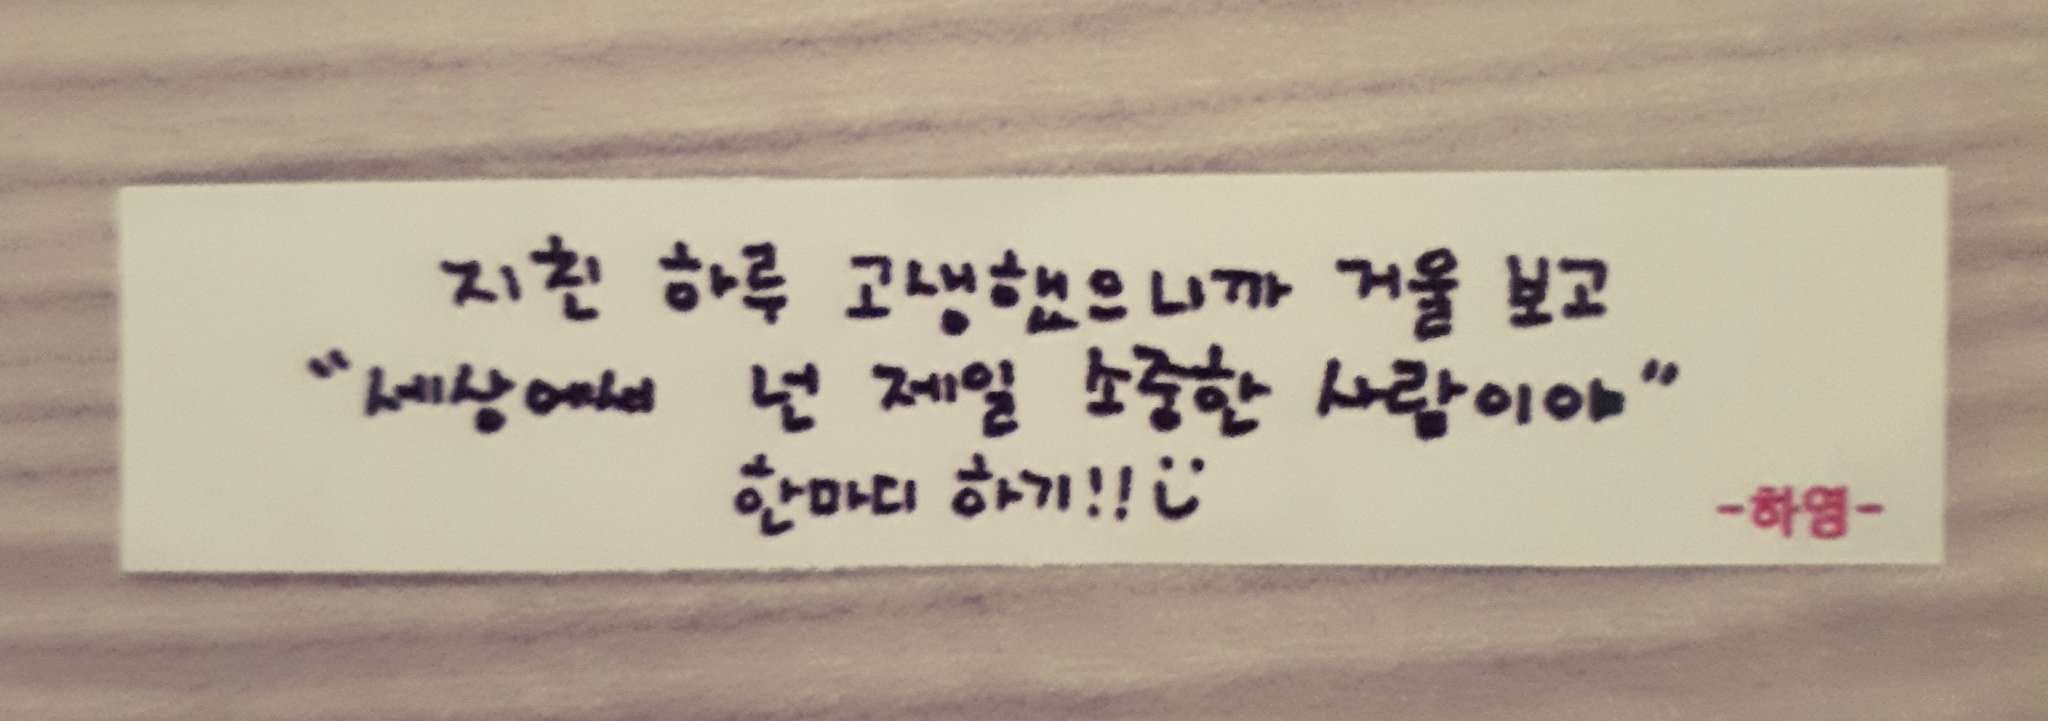 지친 하루 고생했으니까 거울 보고
“세상에서 넌 제일 소중한 사람이야”
한마디 하기!!
-하영-